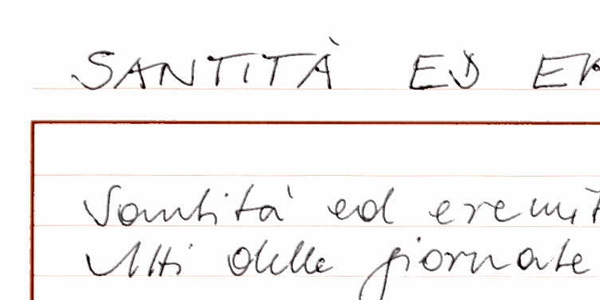 SANTITÀ ED ER
Santità ed eremit
Atti delle giornate